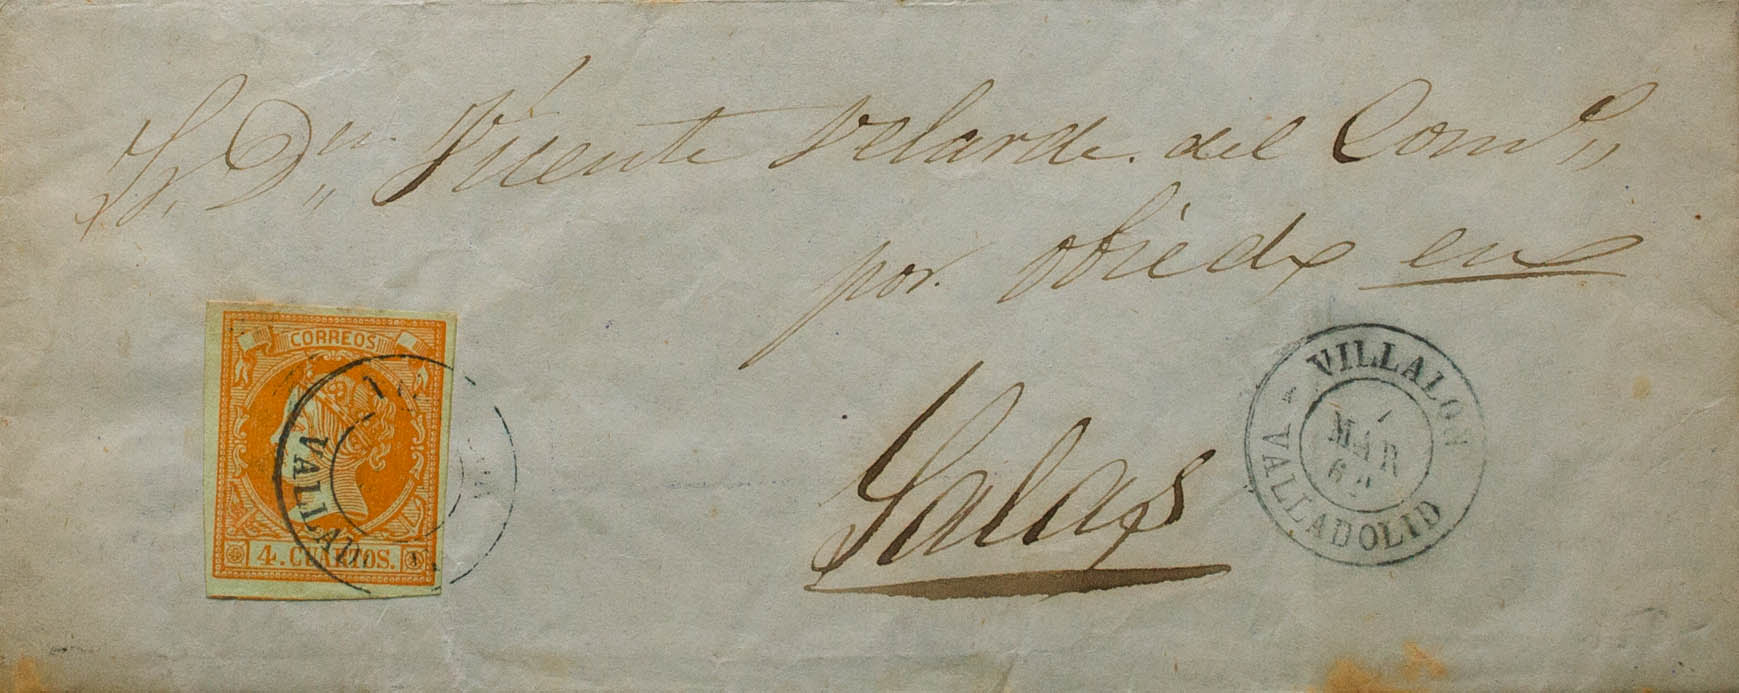 S. Dn. Vicente Velarde. del Comº,,
por. Obiedo en
Salas
CORREOS
4. CUARTOS.
VALLADOLID
VILLALON
MAR
VALLADOLID